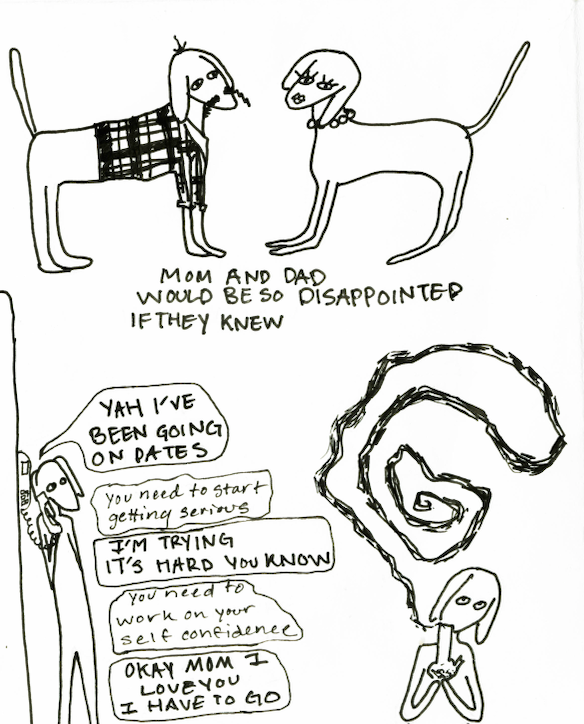 MOM AND DAD
WOULD BE SO DISAPPOINTED
IF THEY KNEW
YAH I'VE
BEEN GOING
ON DATES
you need to start
getting serious
I'M TRYING
IT'S HARD YOU KNOW
you need to
work on your
self confidence
OKAY MOM I
LOVE YOU
I HAVE TO GO